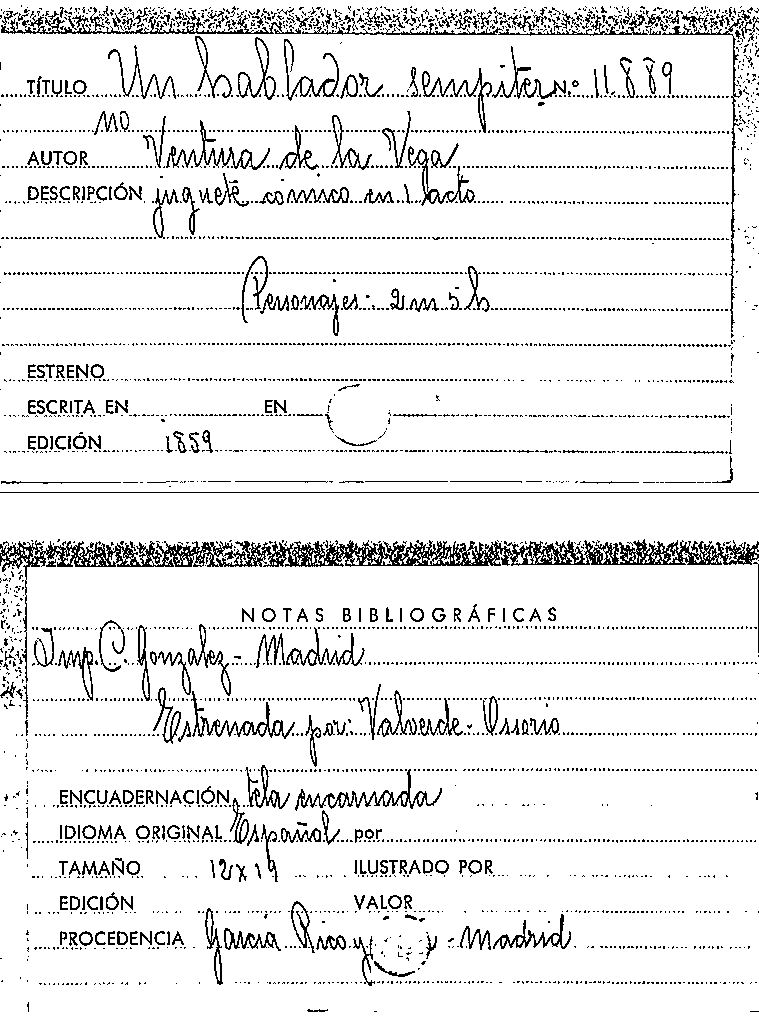 TÍTULO Un hablador sempiter N.º 11.889
no
AUTOR Ventura de la Vega
DESCRIPCIÓN juguete cómico en 1 acto
Personajes: 2 m 5 h
ESTRENO
ESCRITA EN EN
EDICIÓN 1859
NOTAS BIBLIOGRÁFICAS
Imp. C. Gonzalez - Madrid
Estrenada por: Valverde - Ossorio
ENCUADERNACIÓN tela encarnada
IDIOMA ORIGINAL Español por
TAMAÑO 12 x 19 ILUSTRADO POR
EDICIÓN VALOR
PROCEDENCIA García Rico y - Madrid